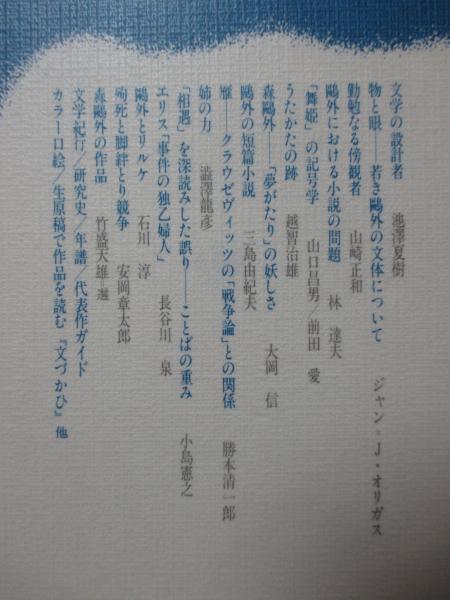 文学の設計者　池澤夏樹
物と眼――若き鷗外の文体について　ジャン=J・オリガス
勤勉なる傍観者　山崎正和
鷗外における小説の問題　林　達夫
「舞姫」の記号学　山口昌男／前田　愛
うたかたの跡　越智治雄
森鷗外――「夢がたり」の妖しさ　大岡　信
鷗外の短篇小説　三島由紀夫
雁――クラウゼヴィッツの「戦争論」との関係　勝本清一郎
姉の力　澁澤龍彦
「相遇」を深読みした誤り――ことばの重み　小島憲之
エリス「事件の独乙婦人」　長谷川　泉
鷗外とリルケ　石川　淳
殉死と脚絆とり競争　安岡章太郎
森鷗外の作品　竹盛天雄=選
文学紀行／研究史／年譜／代表作ガイド
カラー口絵／生原稿で作品を読む『文づかひ』他